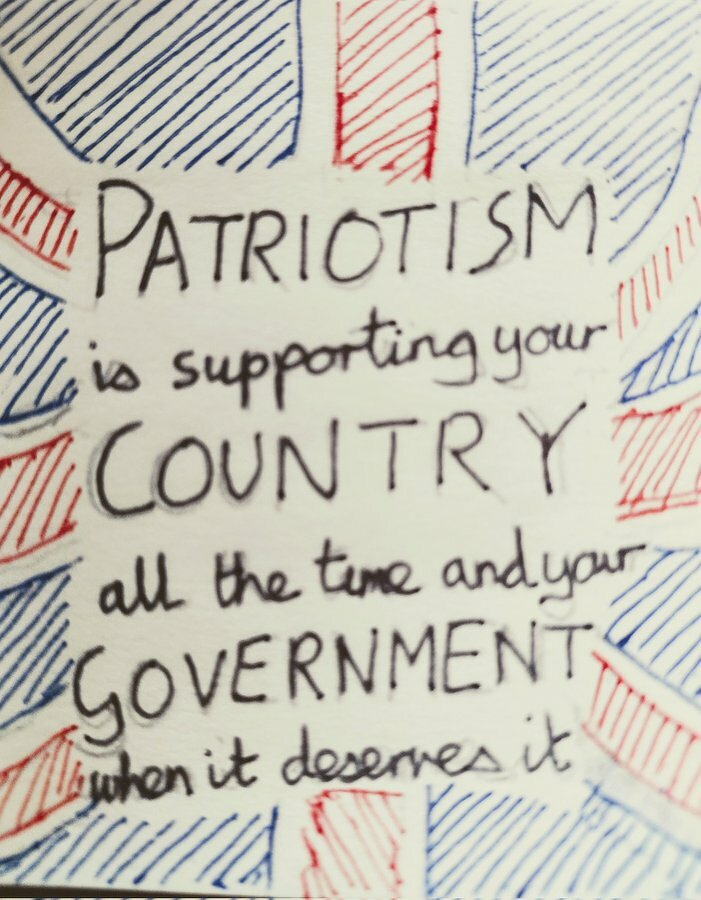 PATRIOTISM
is supporting your
COUNTRY
all the time and your
GOVERNMENT
when it deserves it